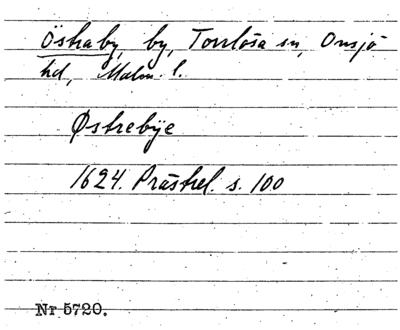 Östraby, by, Torrlösa sn, Onsjö
hd, Malm. l.
Østrebÿe
1624. Prästrel. s. 100
Nr 5720.